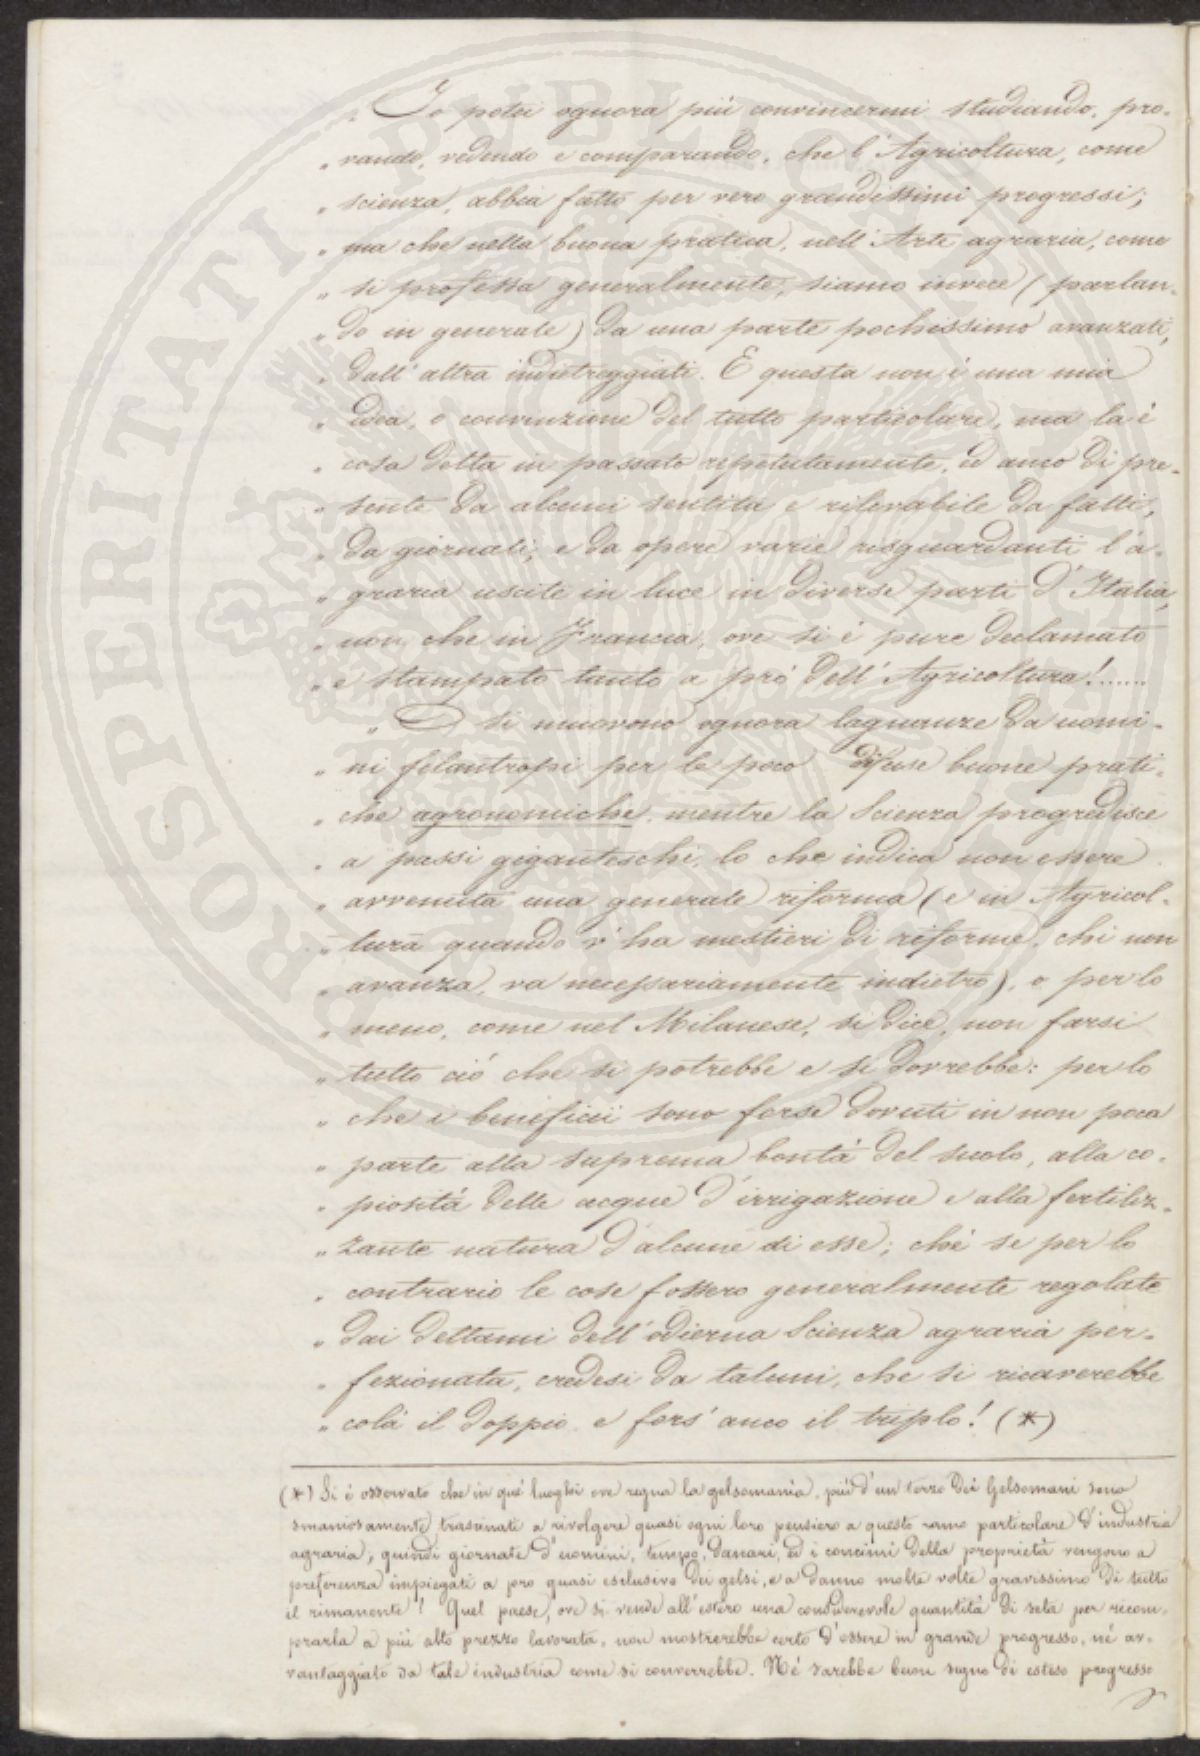 „ Io potei ognora più convincermi studiando, pro-
„ vando, vedendo e comparando, che l'Agricoltura, come
„ scienza, abbia fatto per vero grandissimi progressi;
„ ma che nella buona pratica, nell'Arte agraria, come
„ si professa generalmente, siamo invece (parlan-
„ do in generale) da una parte pochissimo avanzati,
„ dall'altra indietreggiati. E questa non è una mia
„ idea, o convinzione del tutto particolare, ma la è
„ cosa detta in passato ripetutamente, ed anco di pre-
„ sente da alcuni sentita e rilevabile da fatti,
„ da giornali, e da opere varie risguardanti l'a-
„ graria uscite in luce in diverse parti d'Italia,
„ non che in Francia, ove si è pure declamato
„ e stampato tanto a prò dell'Agricoltura!......
„ E si muovono ognora lagnanze da uomi-
„ ni filantropi per le poco difuse buone prati-
„ che agronomiche, mentre la Scienza progredisce
„ a passi giganteschi, lo che indica non essere
„ avvenuta una generale riforma (e in Agricol-
„ tura quando v'ha mestieri di riforme, chi non
„ avanza, va necessariamente indietro), o per lo
„ meno, come nel Milanese, si dice, non farsi
„ tutto ciò che si potrebbe e si dovrebbe: per lo
„ che i beneficii sono forse dovuti in non poca
„ parte alla suprema bontà del suolo, alla co-
„ piosità delle acque d'irrigazione e alla fertiliz-
„ zante natura d'alcune di esse; chè se per lo
„ contrario le cose fossero generalmente regolate
„ dai dettami dell'odierna Scienza agraria per-
„ fezionata, credesi da taluni, che si ricaverebbe
„ colà il doppio e fors'anco il triplo! (*)
(*) Si è osservato che in que' luoghi ove regna la gelsomania, più d'un terzo dei Gelsomani sono
smaniosamente trascinati a rivolgere quasi ogni loro pensiero a questo ramo particolare d'industria
agraria; quindi giornate d'uomini, tempo, danari, ed i concimi della proprietà vengono a
preferenza impiegati a pro quasi esclusivo dei gelsi, e a danno molte volte gravissimo di tutto
il rimanente! Quel paese, ove si vende all'estero una considerevole quantità di seta per ricom-
prarla a più alto prezzo lavorata, non mostrerebbe certo d'essere in grande progresso, nè av-
vantaggiato da tale industria come si converrebbe. Nè sarebbe buon segno di esteso progresso
PROSPERITATI PVBLICAE